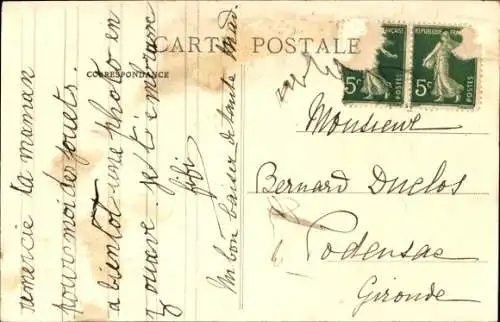 CARTE POSTALE
CORRESPONDANCE
remercie ta maman
pour moi des jouets.
a bientôt une photo en
zouave. je t'embrasse
fifi
Un bon baiser de tante
RÉPUBLIQUE FRANÇAISE
5c
POSTES
5c
POSTES
Monsieur
Bernard Duclos
Podensac
Gironde